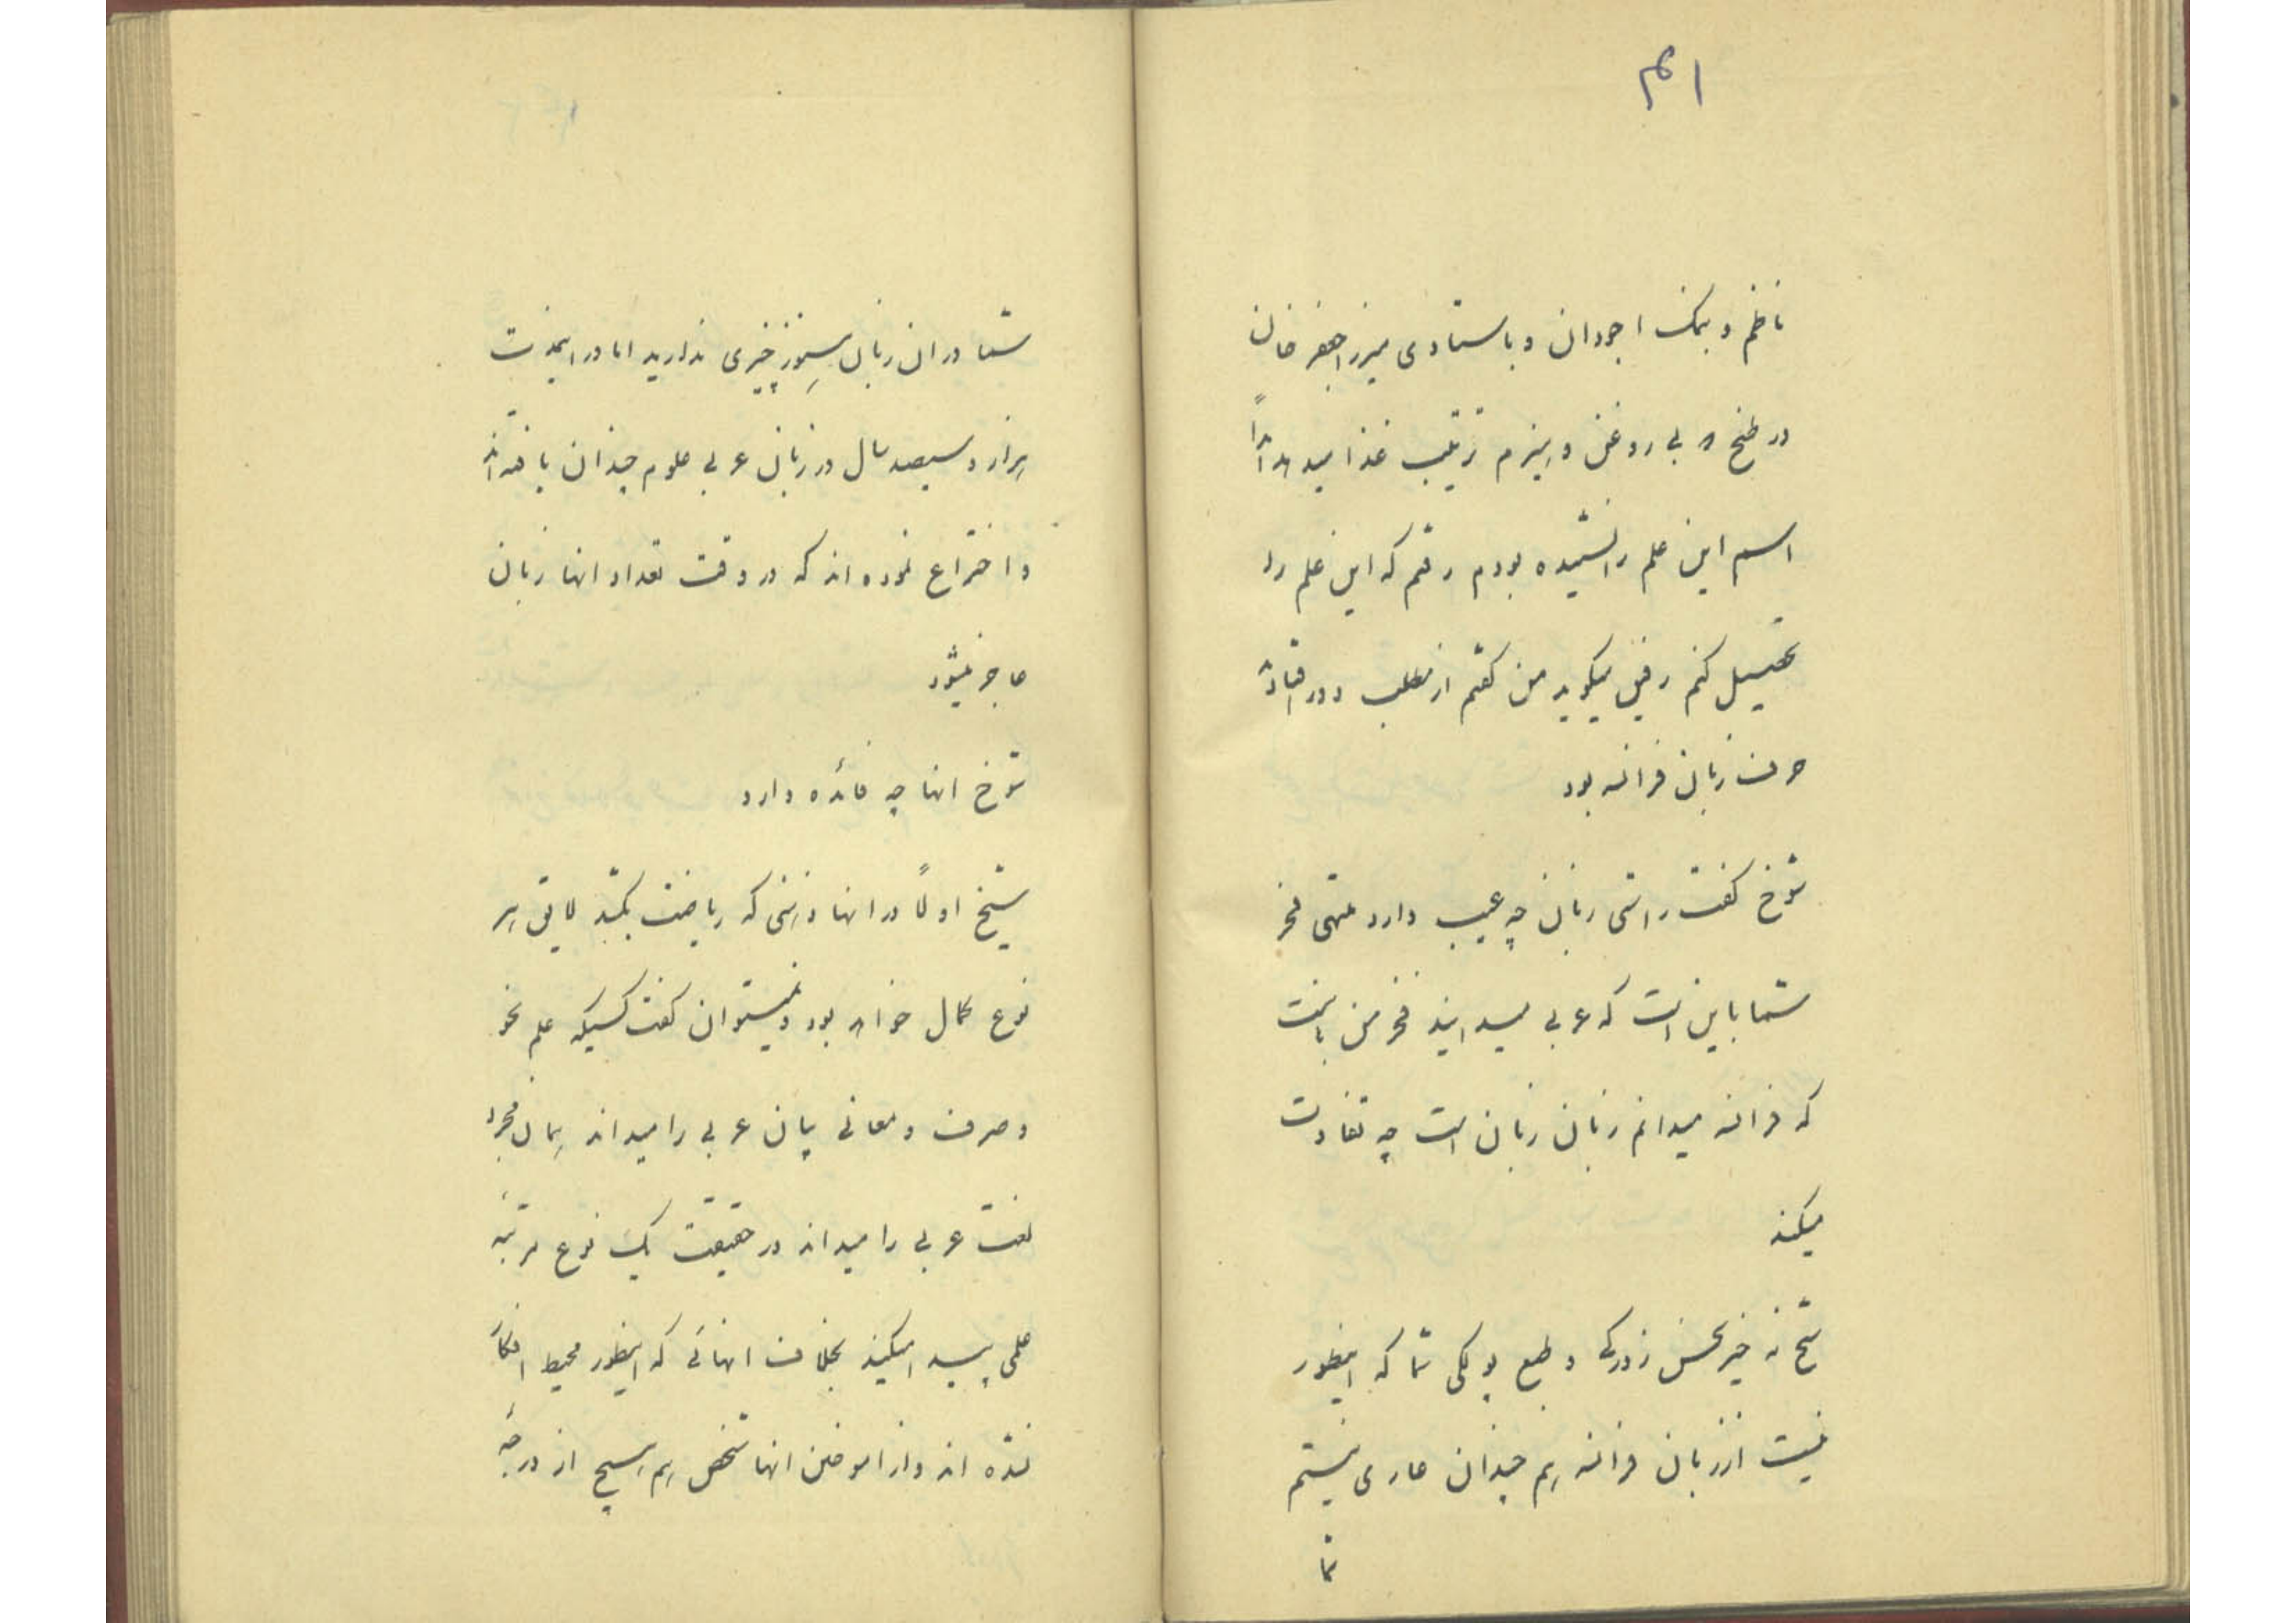 ۱۴۱
ناظم و بیک اجودان و باستادی میرزا جعفر خان
در طبخ بی روغن و هیزم ترتیب غذا میدهد
اسم این علم را نشنیده بودم رفتم که این علم را
تحصیل کنم رفیق میگوید من گفتم از مطلب دور افتاد
حرف زبان فرانسه بود
شوخ گفت راستی زبان چه عیب دارد منتهی فخر
شما باین است که عربی میدانید فخر من باینست
که فرانسه میدانم زبان زبان است چه تفاوت
میکند
شیخ نه خیر محض زورکی و طبع پولکی شما که اینطور
نیست از زبان فرانسه هم چندان عاری نیستم
شما
شما در آن زبان هنوز چیزی ندارید اما در اینمدت
هزار و سیصد سال در زبان عربی علوم چندان یافته‌اند
و اختراع نموده اند که در وقت تعداد انها زبان
عاجز میشود
شوخ انها چه فائده دارد
شیخ اولاً در انها ذهنی که ریاضت بکشد لایق هر
نوع کمال خواهد بود و نمیتوان گفت کسیکه علم نحو
و صرف و معانی بیان عربی را میداند همان مجرد
لغت عربی را میداند در حقیقت یک نوع مرتبه
علمی پیدا میکند بخلاف انهائی که اینطور محیط افکار
نشده اند و از اموختن انها شخص هم هیچ از درجهٔ